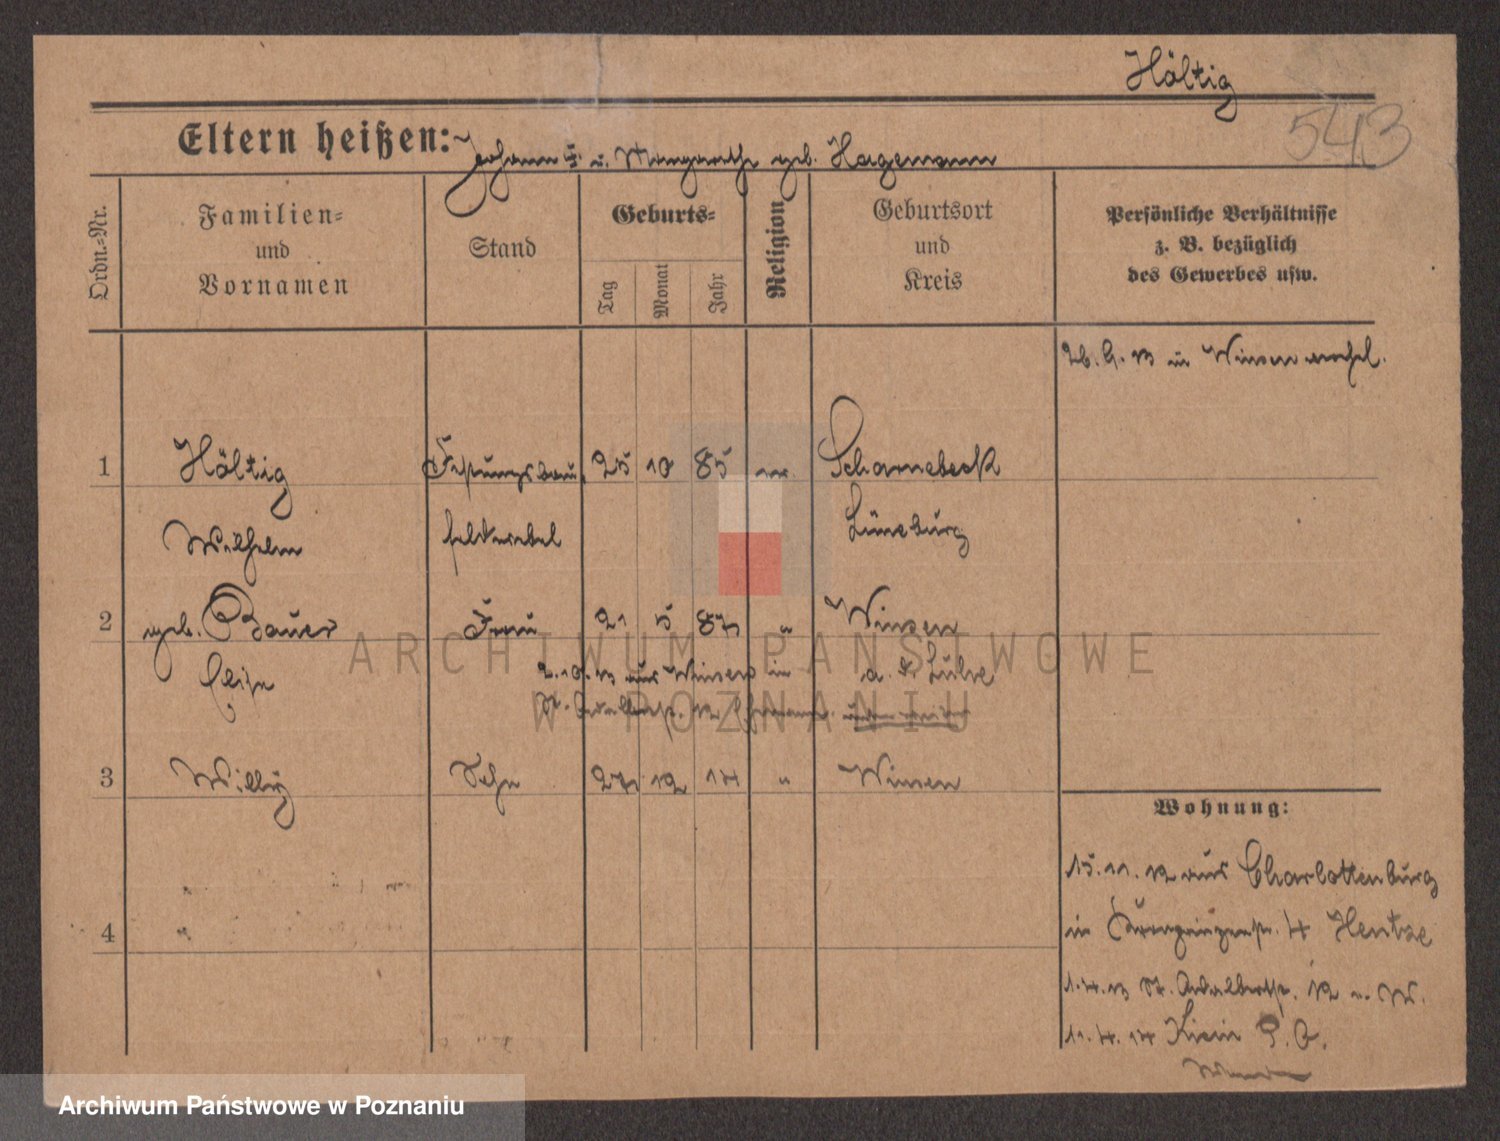 Höltig
543
Eltern heißen: Johann u. Margarethe geb. Hagemann
Ordn.-Nr.
Familien-
und
Vornamen
Stand
Geburts-
Tag
Monat
Jahr
Religion
Geburtsort
und
Kreis
Persönliche Verhältnisse
z. B. bezüglich
des Gewerbes usw.
26. 9. 13 in Winsen verehel.
1 Höltig Festungsbau 25 10 85 ev. Scharnebeck
Wilhelm feldwebel Lüneburg
2 geb. Bauer Frau 21 5 87 " Winsen
Elise 2. 10. 13 aus Winsen in a. d. Luhe
St. Adalbertstr. 12
3 Willy Sohn 27 12 14 " Winsen
Wohnung:
15. 11. 12 aus Charlottenburg
in Kronprinzenstr. 4 Hentze
4
1. 4. 13 St. Adalbertstr. 12 u. W.
11. 4. 14
ARCHIWUM PAŃSTWOWE
W POZNANIU
Archiwum Państwowe w Poznaniu